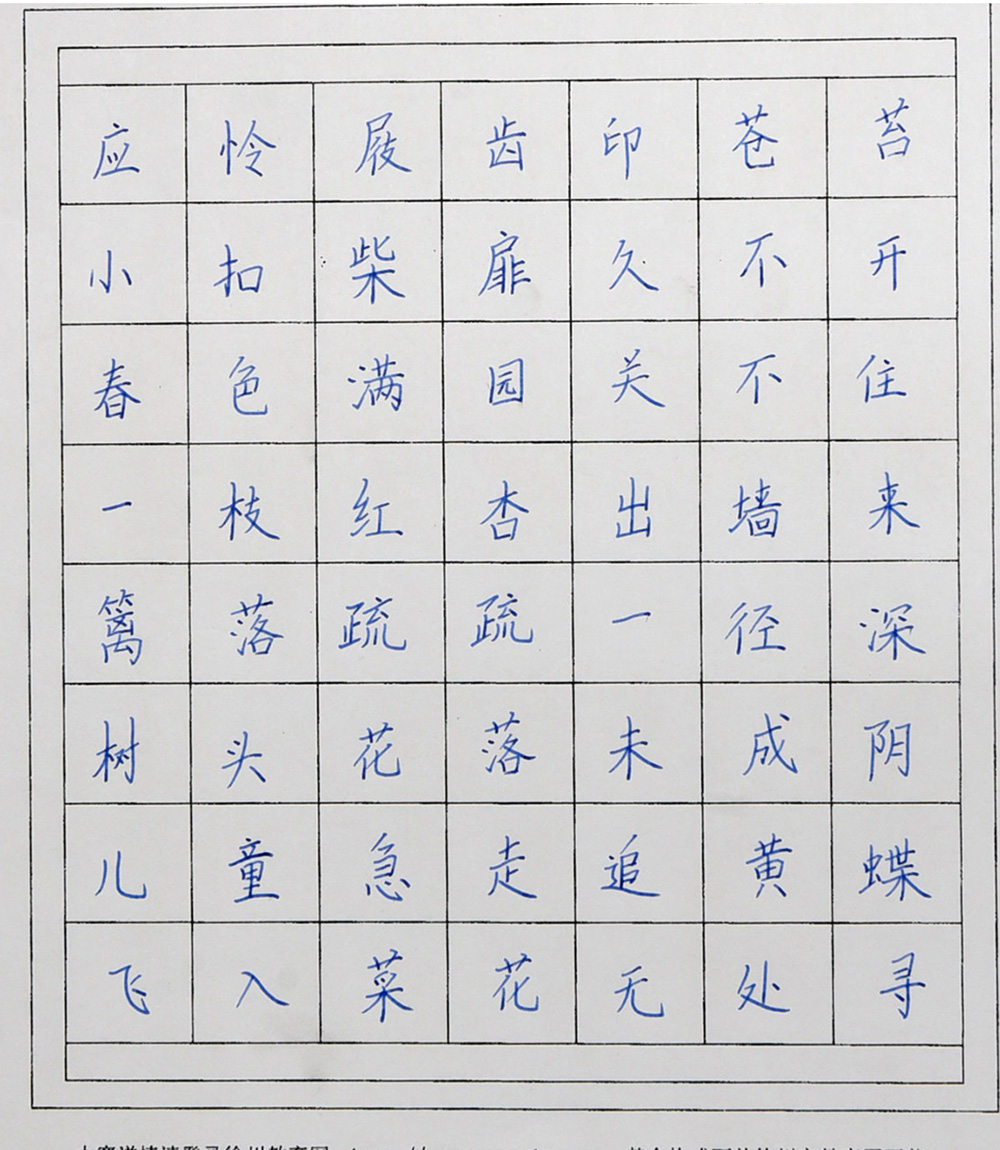 应怜屐齿印苍苔
小扣柴扉久不开
春色满园关不住
一枝红杏出墙来
篱落疏疏一径深
树头花落未成阴
儿童急走追黄蝶
飞入菜花无处寻